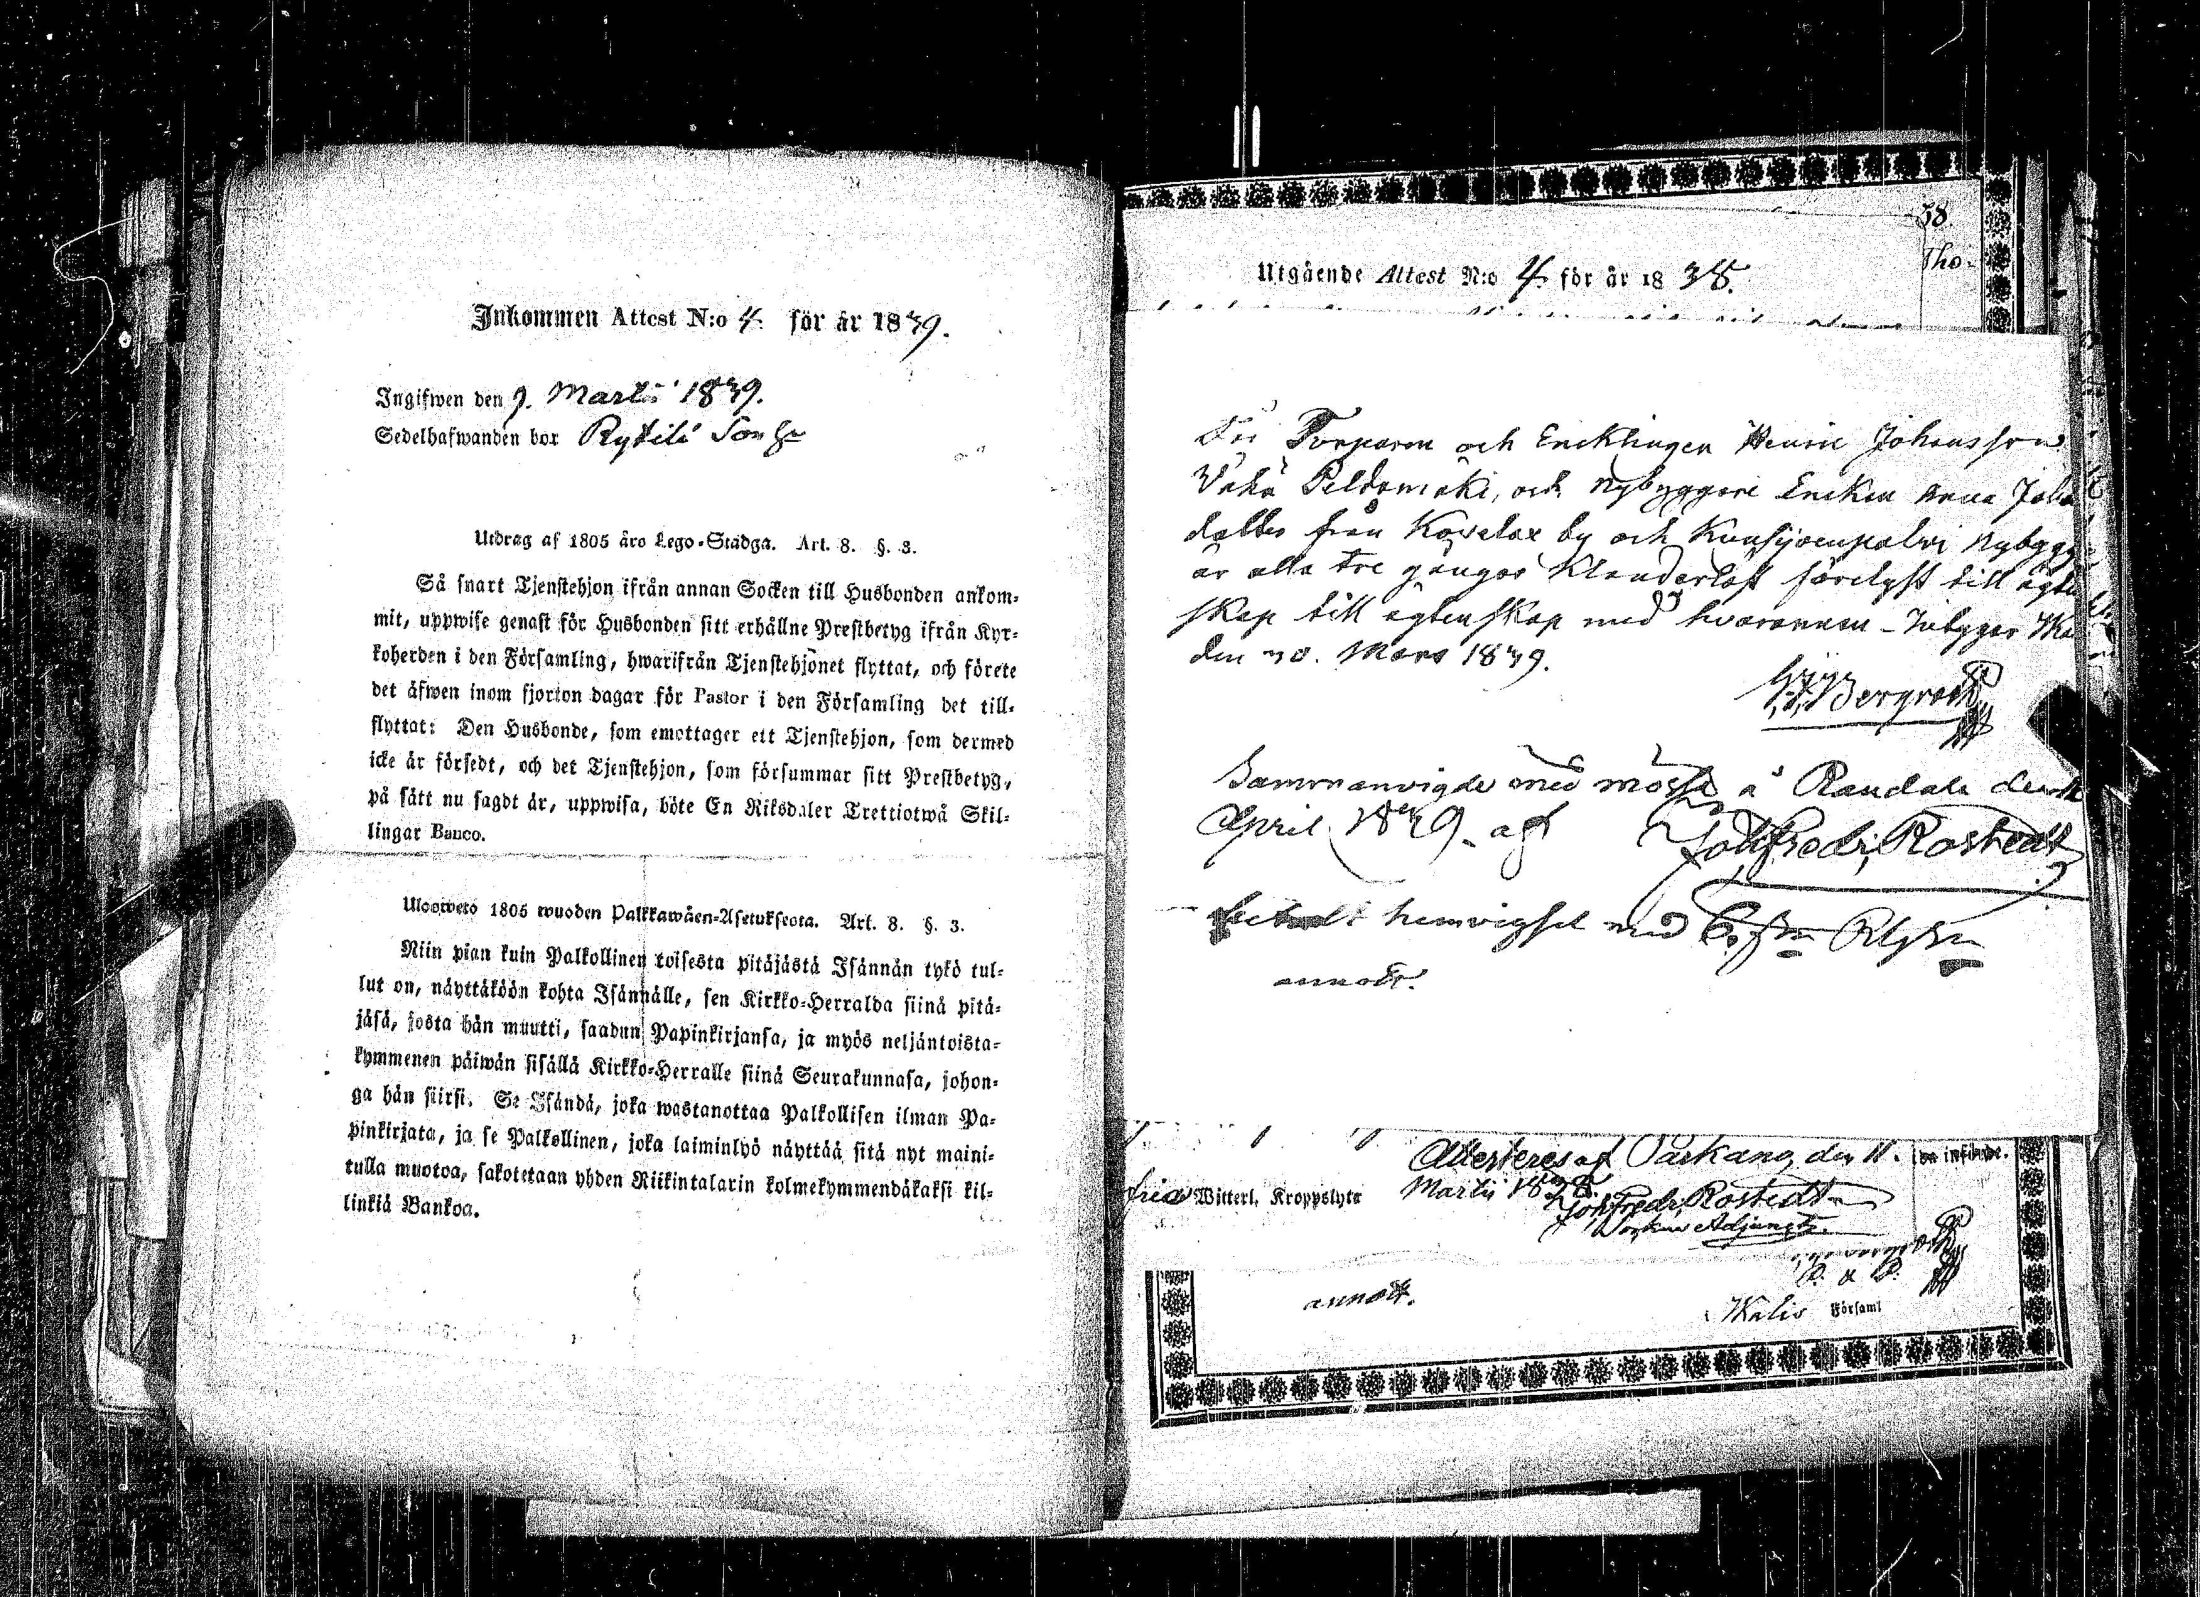 Inkommen Attest N:o 4. för år 1839.
Ingifwen den 9. Martii 1839.
Sedelhafwanden bor Rytilä
Utdrag af 1805 års Lego-Stadga. Art. 8. §. 3.
Så snart Tjenstehjon ifrån annan Socken till Husbonden ankom-
mit, uppwise genast för Husbonden sitt erhållne Prestbetyg ifrån Kyr-
koherden i den Församling, hwarifrån Tjenstehjonet flyttat, och förete
det äfwen inom fjorton dagar för Pastor i den Församling det till-
flyttat: Den Husbonde, som emottager ett Tjenstehjon, som dermed
icke är försedt, och det Tjenstehjon, som försummar sitt Prestbetyg,
på sätt nu sagdt är, uppwisa, böte En Riksdaler Trettiotwå Skil-
lingar Banco.
Uloswetö 1805 wuoden Palkkawäen-Asetuksesta. Art. 8. §. 3.
Niin pian kuin Palkollinen toisesta pitäjästä Isännän tykö tul-
lut on, näyttäköön kohta Isännälle, sen Kirkko-Herralda siinä pitä-
jäsä, josta hän muutti, saadun Papinkirjansa, ja myös neljäntoista-
kymmenen päiwän sisällä Kirkko-Herralle siinä Seurakunnasa, johon-
ga hän siirsi. Se Isändä, joka wastanottaa Palkollisen ilman Pa-
pinkirjata, ja se Palkollinen, joka laiminlyö näyttää sitä nyt maini-
tulla muotoa, sakotetaan yhden Riikintalarin kolmekymmendäkaksi kil-
linkiä Bankoa.
38.
Tho-
Utgående Attest N:o 4. för år 1838.
Torparen och Encklingen Henric Johansson
Vähä Peldomäki, och Nybyggare Enckan Anna Joha
dotter från Kovelax by och Kunsijoenpalvi Nybygg
är alla tre gångor Klanderlöst förelyst till ägten
skap till ägtenskap med hvarannan - Intygar Ika
den 30. Mars 1839.
Bergroth
Sammanvigde med mässa å Raudala den
April 1839. af Joh Fredr. Rostedt
betalt hemvigsel med
annott.
Attesteres af Parkano, den 11.
Martii 1838. Joh Fredr. Rostedt
Adjunct.
fria Witterl. Kroppslyte
annott.
P. & P.
Ikalis Församl